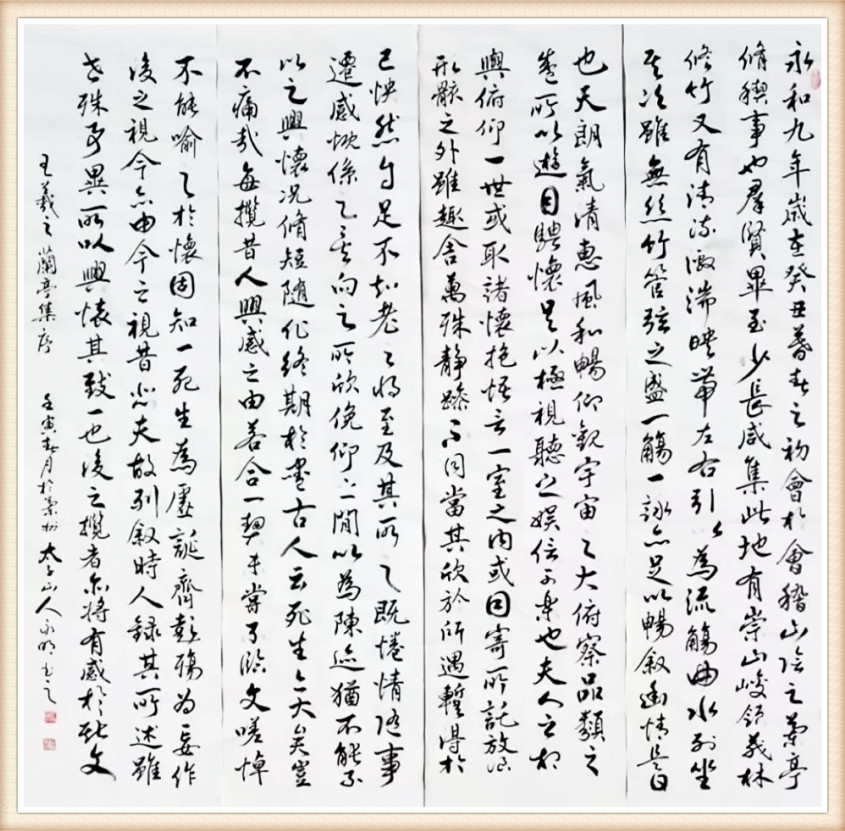 永和九年歲在癸丑暮春之初會於會稽山陰之蘭亭
脩稧事也群賢畢至少長咸集此地有崇山峻領茂林
修竹又有清流激湍映帶左右引以為流觴曲水列坐
其次雖無絲竹管弦之盛一觴一詠亦足以暢敘幽情是日
也天朗氣清惠風和暢仰觀宇宙之大俯察品類之
盛所以遊目騁懷足以極視聽之娛信可樂也夫人之相
與俯仰一世或取諸懷抱悟言一室之內或因寄所託放浪
形骸之外雖趣舍萬殊靜躁不同當其欣於所遇暫得於
己怏然自足不知老之將至及其所之既惓情隨事
遷感慨係之矣向之所欣俛仰之間以為陳迹猶不能不
以之興懷況脩短隨化終期於盡古人云死生亦大矣豈
不痛哉每攬昔人興感之由若合一契未嘗不臨文嗟悼
不能喻之於懷固知一死生為虛誕齊彭殤為妄作
後之視今亦由今之視昔悲夫故列敘時人錄其所述雖
世殊事異所以興懷其致一也後之攬者亦將有感於斯文
王羲之蘭亭集序 壬寅春月於蘭州太子山人永明書之